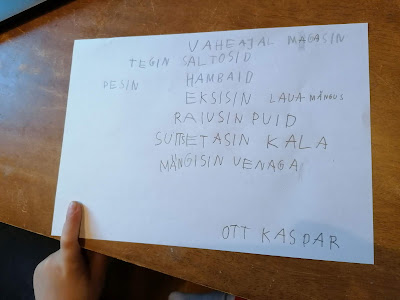 VAHEAJAL MAGASIN
TEGIN SALTOSID
PESIN HAMBAID
EKSISIN LAUA MÄNGUS
RAIUSIN PUID
SUITSETASIN KALA
MÄNGISIN VENAGA
OTT KASPAR